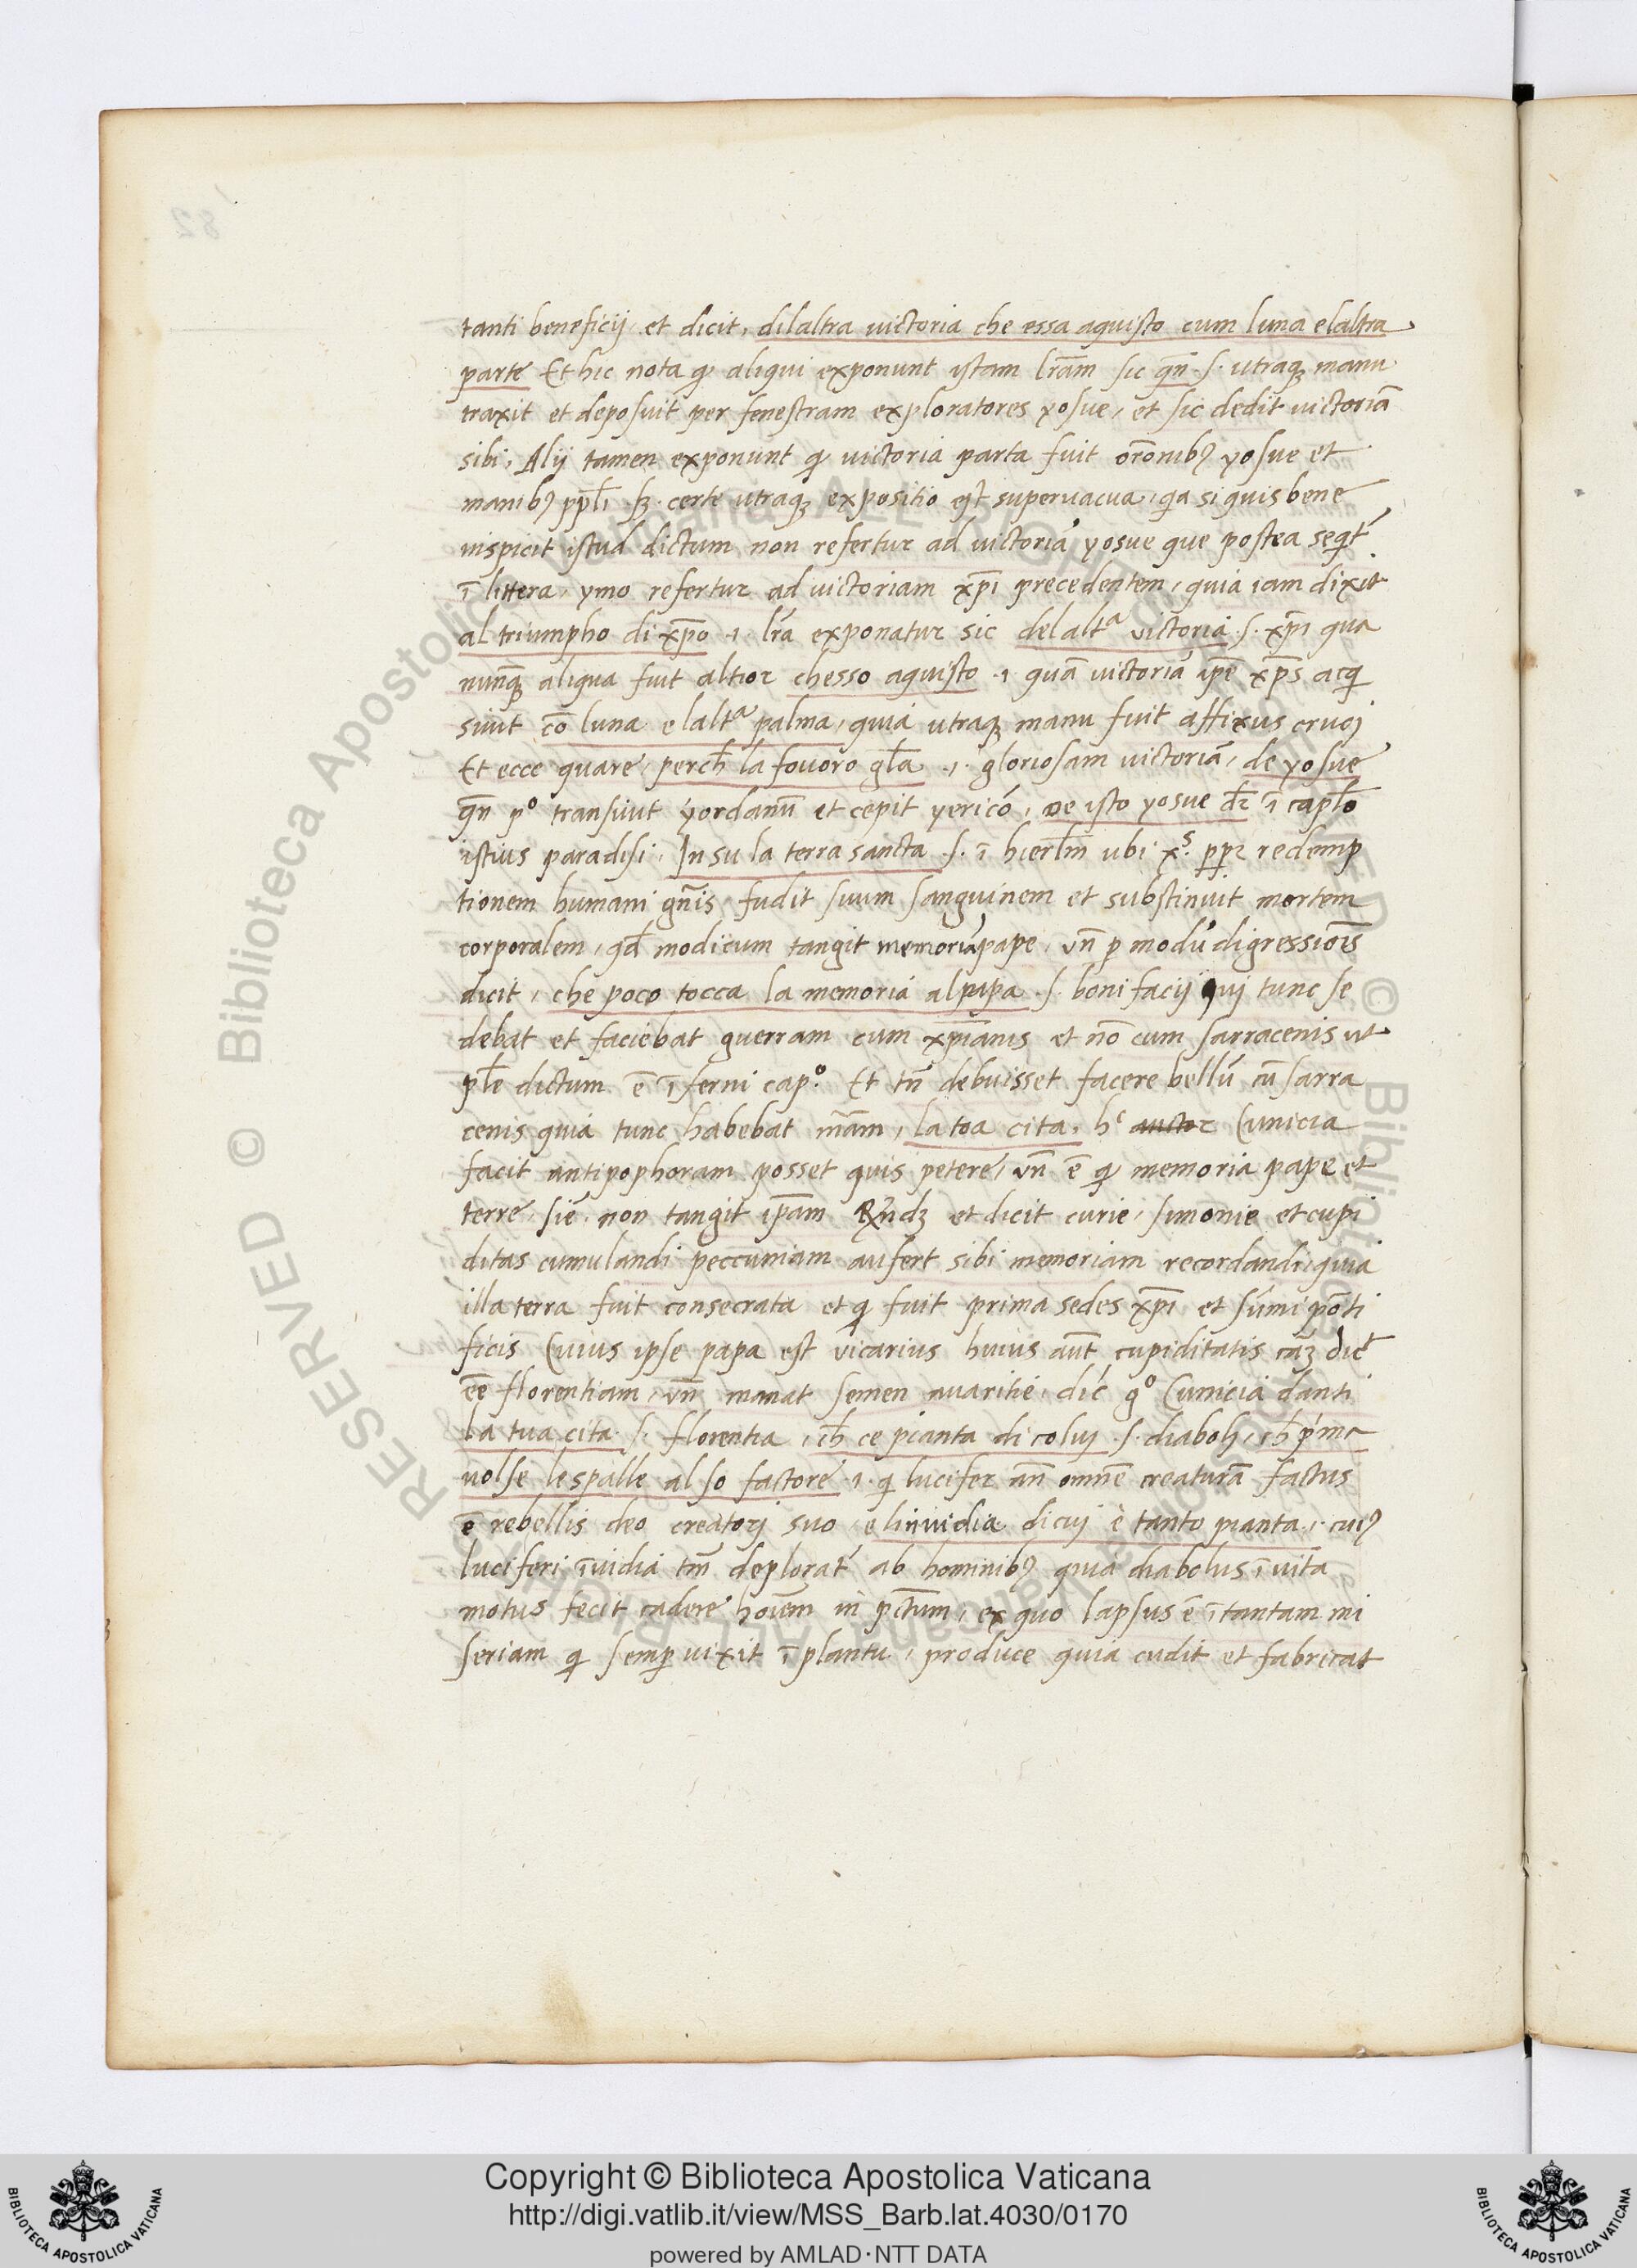 82
tanti beneficij et dicit, dilaltra uictoria che essa aquisto cum luna elaltra
parte Et hic nota qͥ aliqui exponunt istam lr̄am sic qn̄ .s. utraqꝫ manu
traxit et deposuit per fenestram exploratores yosue, et sic dedit uictoriā
sibi, Alij tamen exponunt qͥ uictoria parta fuit or̄onibꝰ yosue et
manibꝰ pp̄lī .sꝫ. certe utraqꝫ expositio est superuacua, qͥa si quis bene
inspicit istud dictum non refertur ad uictoriā yosue que postea seqͥt᷑
ī littera, ymo refertur ad uictoriam xp̄ī precedentem, quia iam dixit
al triumpho di xp̄o .i. lr̄a exponatur sic del altᵃ uictoria .s. xp̄ī qua
nunqꝫ aliqua fuit altior chesso aquisto .i. quā uictoriā ip̄e xp̄s acqͥ
siuit cō luna elaltᵃ palma, quia utraqꝫ manu fuit affixus cruci
Et ecce quare, perch̄ la fouoro gl̄a .i. gloriosam uictoriā, de yosue
qn̄ pº transiuit yordanū et cepit yericó, De isto yosue dr̄ ī capl̄o
istius paradisi, In su la terra sancta .s. ī hierl̄m ubi xˢ. ꝓpr redemp
tionem humani gn̄is fudit suum sanguinem et substinuit mortem
corporalem, qd̄ modicum tangit memoriā pape, vn̄ ꝑ modū digressiōis
dicit, che poco tocca la memoria al papa .s. bonifacij qui tunc se
debat et faciebat guerram cum xp̄ianis et nō cum sarracenis ut
pl̄e dictum ē īferni capº. Et tn̄ debuisset facere bellū cū sarra
cenis quia tunc habebat m̄am, la toa cita, hͨ auctor Cunicia
facit antipophoram posset quis petere, vn̄ ē qͥ memoria pape et
terre, sie, non tangit ip̄am Rn̄dꝫ et dicit curie, simonie et cupi
ditas cumulandi peccuniam aufert sibi memoriam recordandi, quia
illa terra fuit consecrata et qͥ fuit prima sedes xp̄ī et sūmi pōti
ficis Cuius ipse papa est vicarius huius aūt cupiditatis cāꝫ dic̄t
eē̄ florentiam, vn̄ manat semen auaritie, dic̄ gº Cunicia danti
la tua cita .s. florentia, ch̄ ce pianta di coluj .s. diabolj, ch̄ p'ma
uolse le spalle al so factore .i. qͥ lucifer an̄ omnē creaturā factus
ē rebellis deo creatorj suo e linuidia di cuj è tanto pianta .i. cuiꝰ
luciferi īuidia tm̄ deplorat᷑ ab hominibꝰ quia diabolus īuita
motus fecit cadere hoīem in pc̄tum, ex quo lapsus ē ī tantam mi
seriam qͥ semꝑ uixit ī plantu, produce quia cudit et fabricat
© Biblioteca Apostolica Vaticana ALL RIGHTS RESERVED
Copyright © Biblioteca Apostolica Vaticana
http://digi.vatlib.it/view/MSS_Barb.lat.4030/0170
powered by AMLAD·NTT DATA
BIBLIOTECA APOSTOLICA VATICANA
BIBLIOTECA APOSTOLICA VATICANA